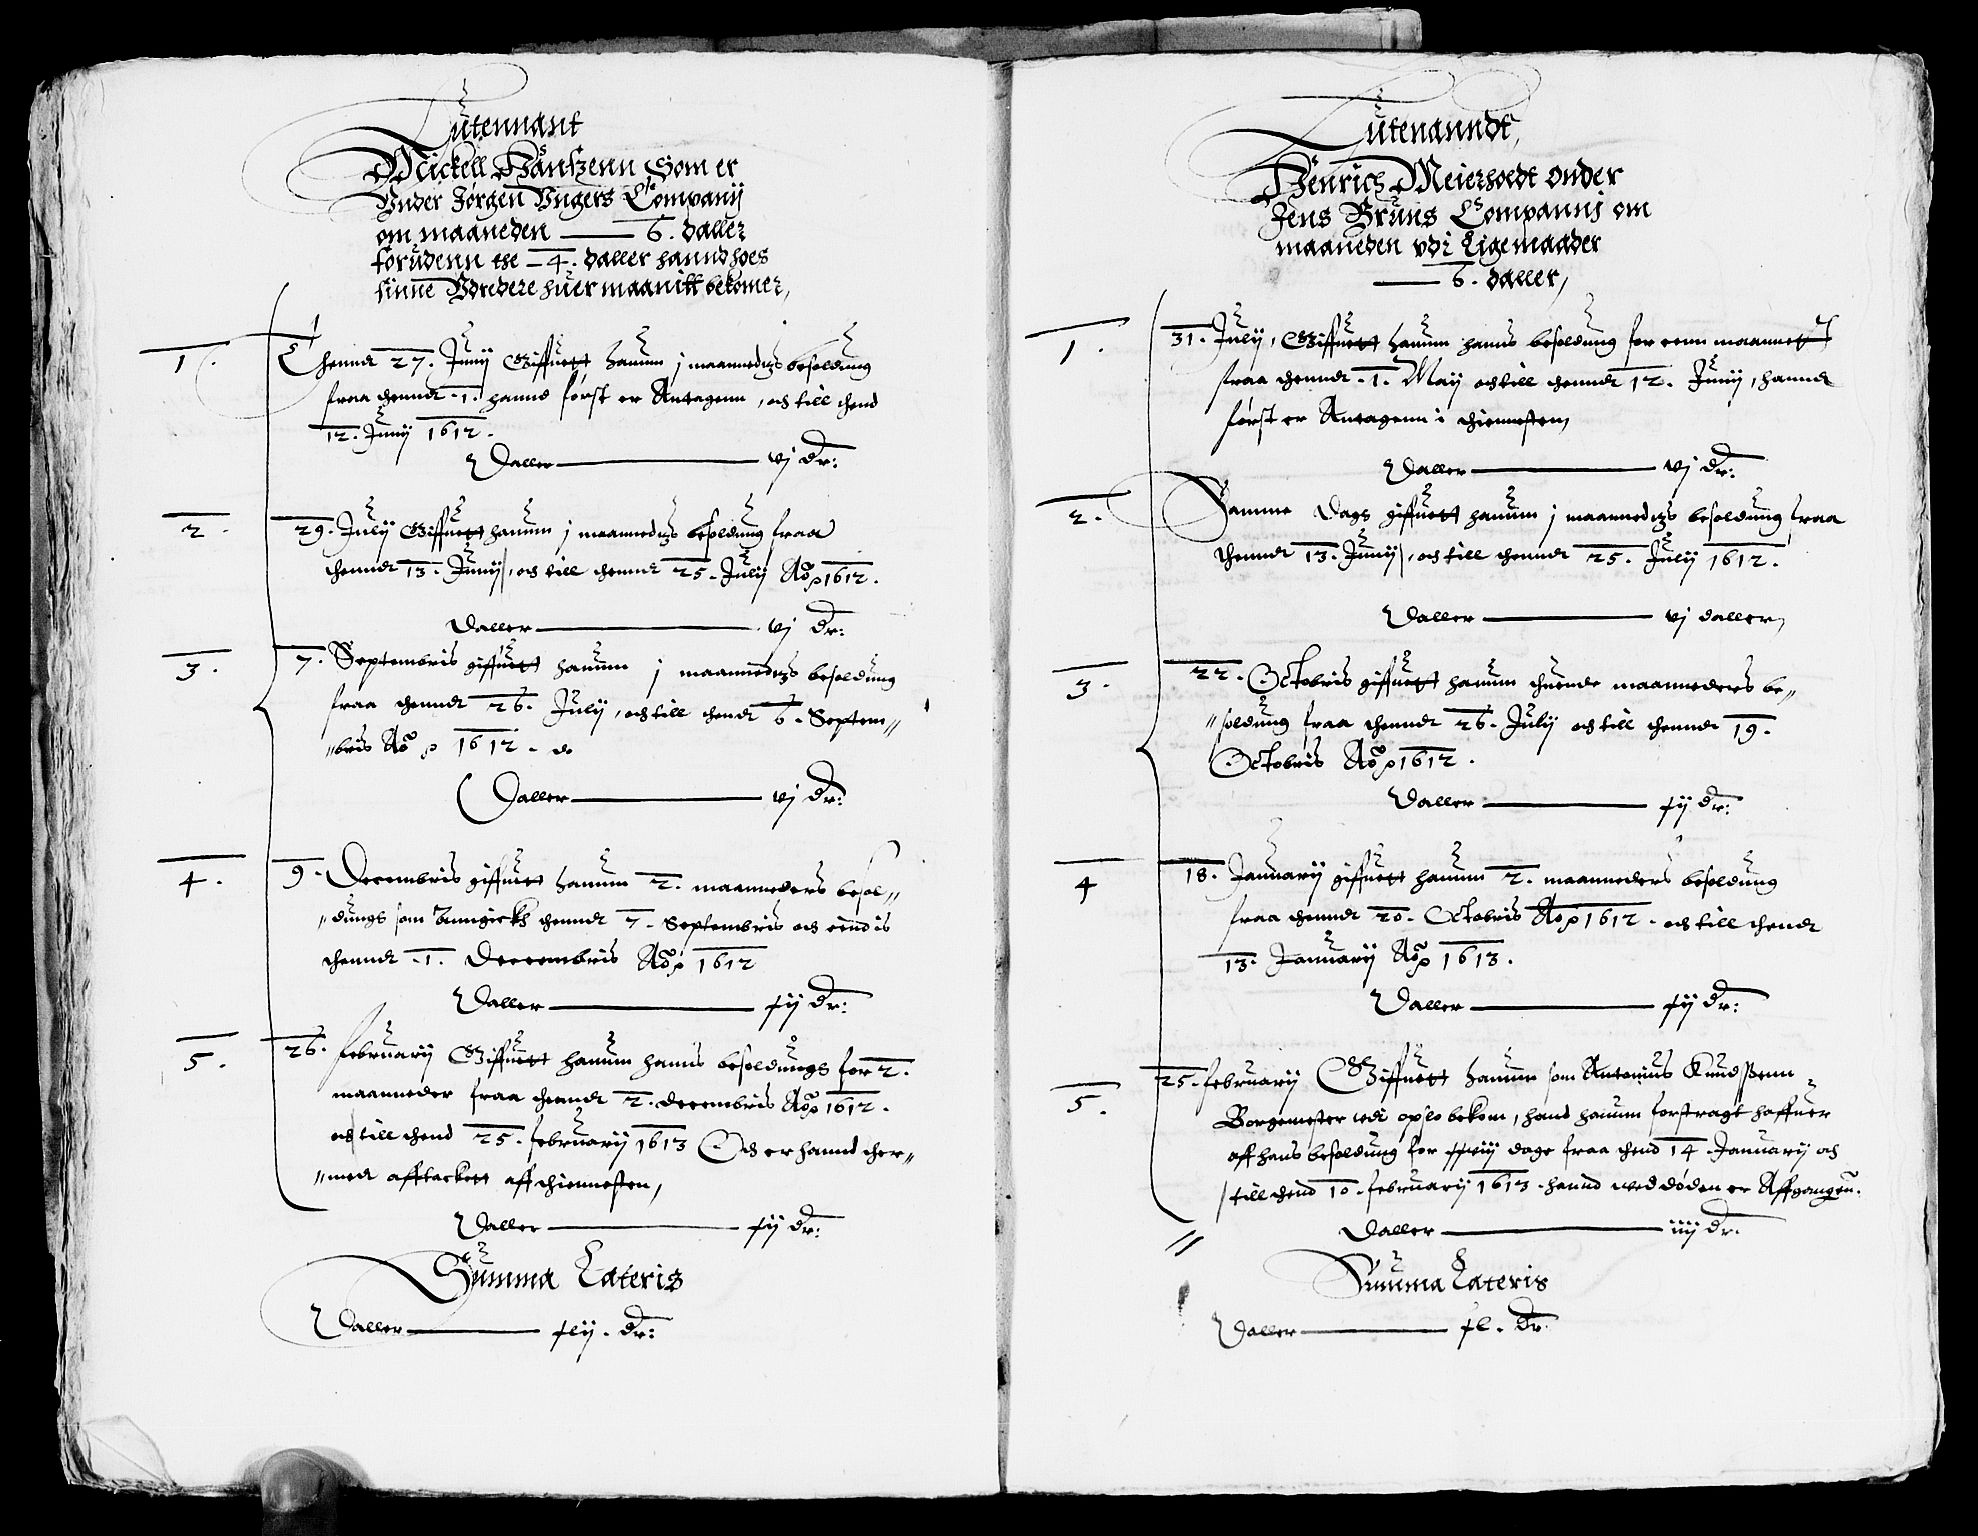 Lutennant
Mickell Hanszenn Som er
Vnder Jørgen Vngers Compannij
om maaneden — 6. daller
forudenn the — 4. daller hannd hoes
sinne Vdredere huer maanitt bekomer,
1. Thennd 27. Junij Giffuett hanum j maannedtzs besoldung
fraa thennd .1. hannd først er Antagenn, och till thend
12. Junij 1612.
Daller — vj dr:
2. 29. Julij Giffuett hanum j maannedtzs besoldung fraa
thennd 13. Junij, och till thennd 25. Julij Ao 1612.
Daller — vj dr:
3. 7. Septembris giffuett hanum j maannedtzs besoldung
fraa thennd 26. Julij, och till thend 6. Septem„
„bris Ao 1612.
Daller — vj dr:
4. 9. Decembris giffuett hanum 2. maanneders besol„
„dungs som angick thennd 7. Septembris och endis
thennd .1. Decembris Ao 1612
Daller — xij dr:
5. 26. februarij Giffuett hanum hanns besoldungs for 2.
maanneder fraa thennd 2. decembris Ao 1612.
och till thend 25. februarij 1613 Och er hannd ther„
„med afftackett aff thiennesten,
Daller — xij dr:
Summa Lateris
Daller — xlij. dr:
Lutenanndt,
Henrich Meierhoedt onder
Jens Bruns Compannj om
maaneden vdi Ligemaader
— 6. daller,
1. 31. Julij, Giffuett hanum hanns besoldung for enn maannett
fraa thennd .1. Maij och till thennd 12. Junij, hannd
først er Antagenn i thiennesten,
Daller — vj dr:
2. Samme dags giffuett hanum j maannedtzs besoldung fraa
thennd 13. Junij, och till thennd 25. Julij 1612.
Daller — vj daller,
3. 22. Octobris giffuett hanum thuende maanneders be„
„soldung fraa thennd 26. Julij och till thennd 19.
Octobris Ao 1612.
Daller — xij dr:
4 18. Januarij giffuett hanum 2. maanneders besoldung
fraa thennd 20. Octobris Ao 1612. och till thend
13. Januarij Ao 1613.
Daller — xij dr:
5. 25. februarij Giffuett hanum som Antonius Knudszenn
Borgemester udi opslo bekom, hand hanum forstragt haffuer
aff hans besoldung for xxviij dage fraa thend 14 Januarij och
till thend 10. februarij 1613. hannd wed døden er Affgangen.
Daller — iiij dr:
Summa Lateris
Daller — xl. dr.